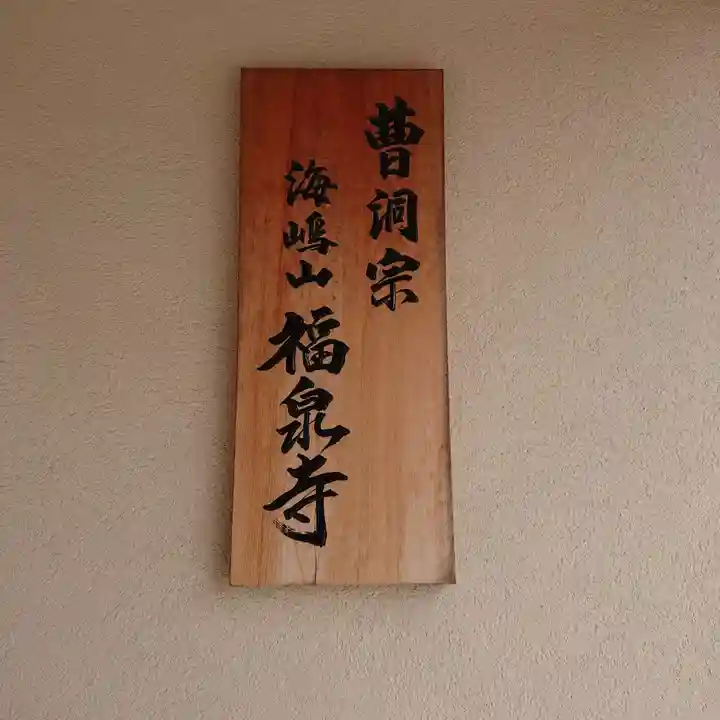 曹洞宗
海嶋山福泉寺